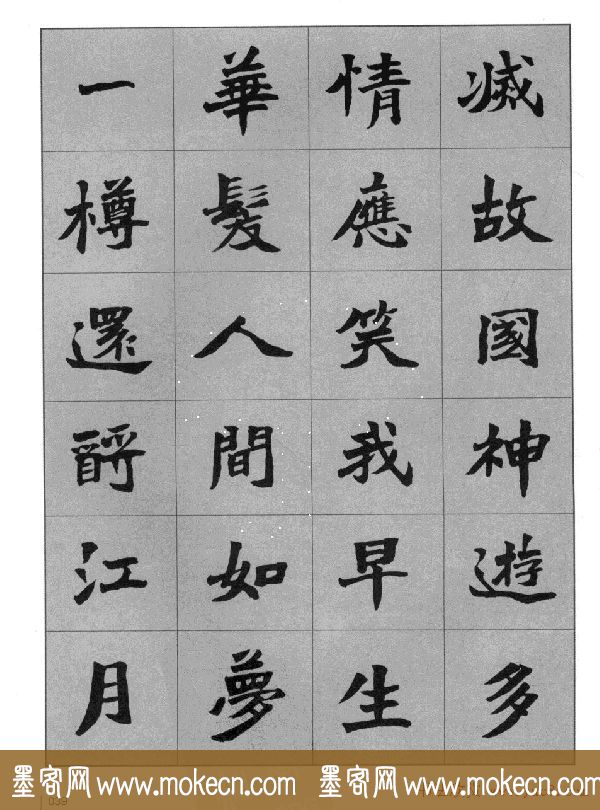 滅故國神遊多
情應笑我早生
華髮人間如夢
一樽還酹江月
墨客网 www.mokecn.com 墨客网 www.mokecn.com
039